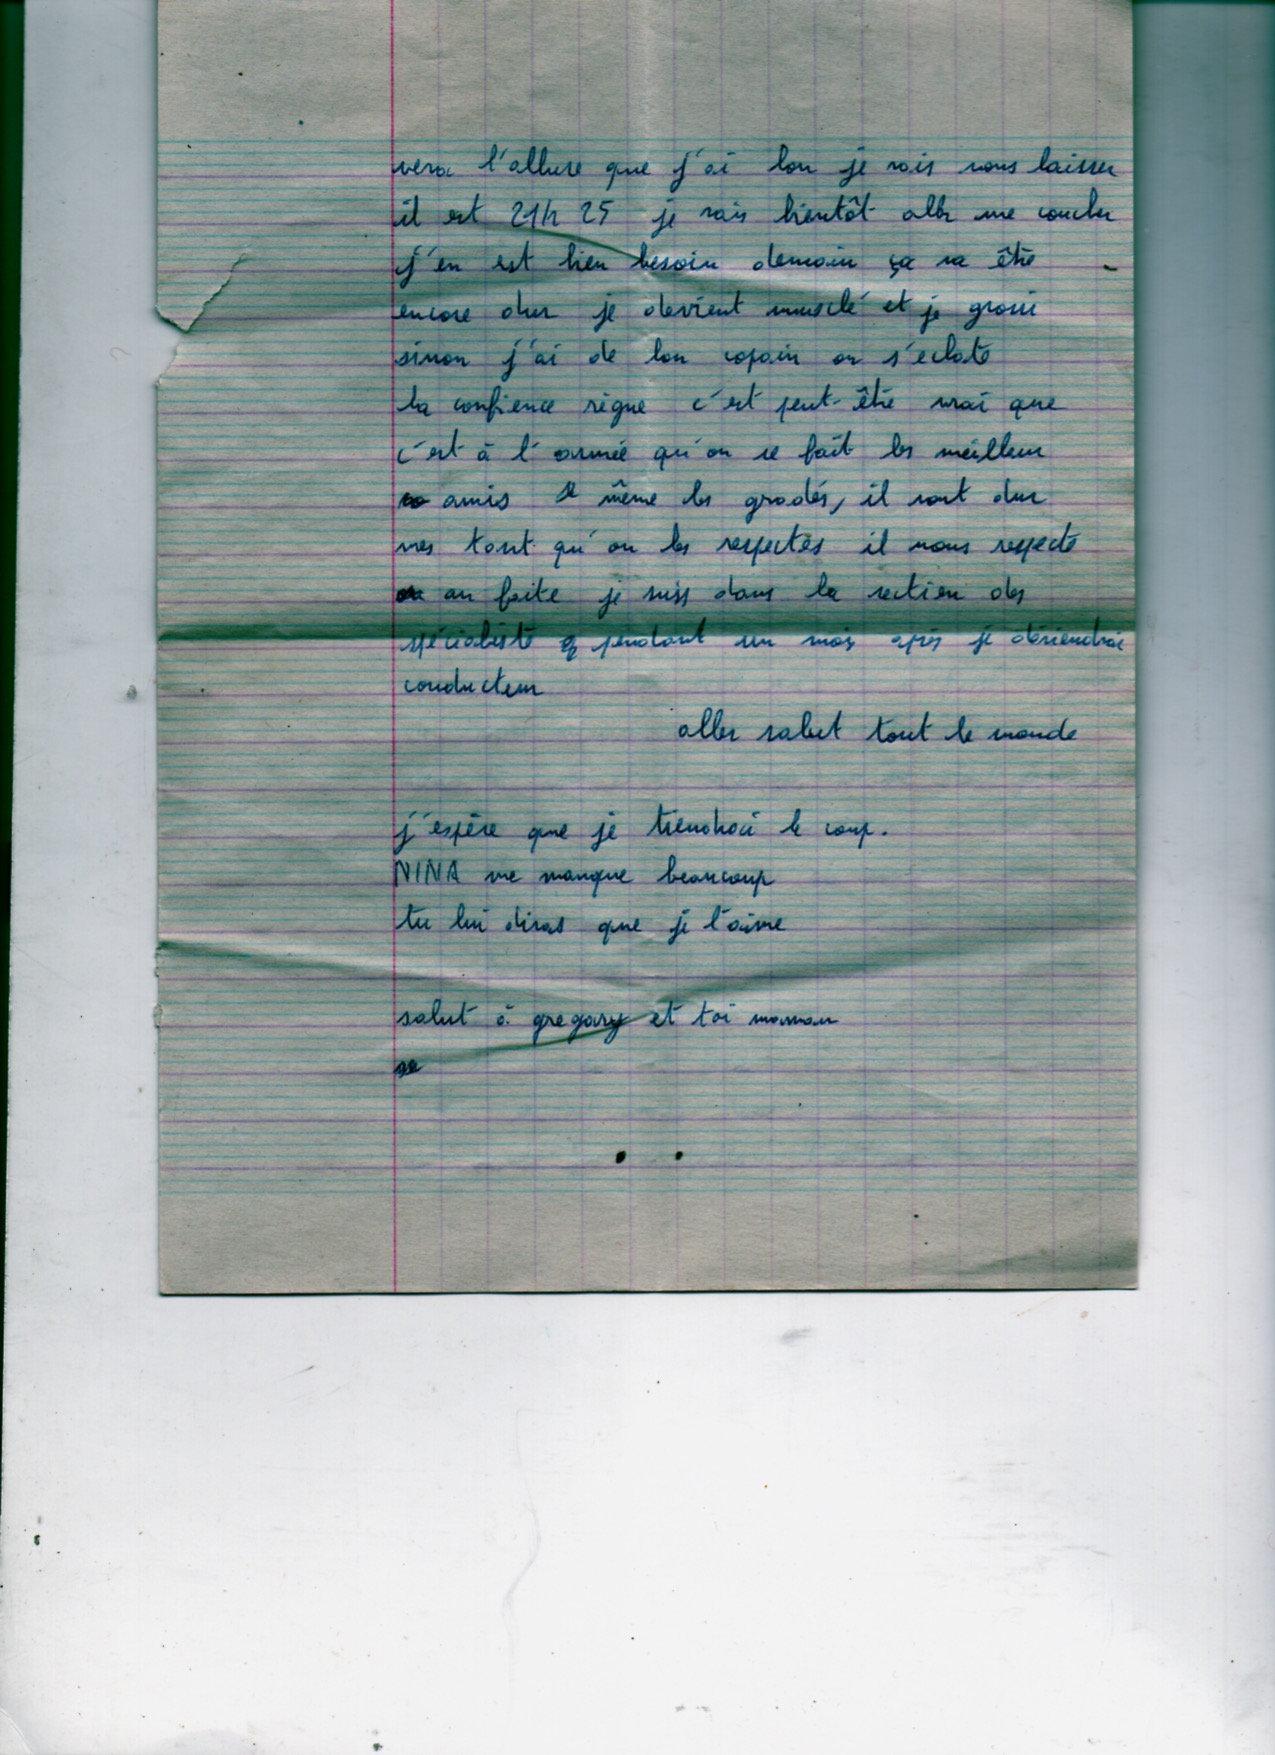 vera l'allure que j'ai bon je vais vous laisser
il est 21h 25 je vais bientôt aller me coucher
j'en est bien besoin demain ça va être
encore dur je devient musclé et je grossi
sinon j'ai de bon copain on s'eclate
la confience règne c'est peut-être vrai que
c'est à l'armée qu'on se fait les meilleur
amis même les gradés, il sont dur
mes tant qu'on les respectes il nous respecte
au faite je suis dans la section des
spécialiste pendant un mois après je deviendrai
conducteur
aller salut tout le monde
j'espère que je tiendrai le coup.
NINA me manque beaucoup
tu lui diras que je l'aime
salut à gregory et toi maman